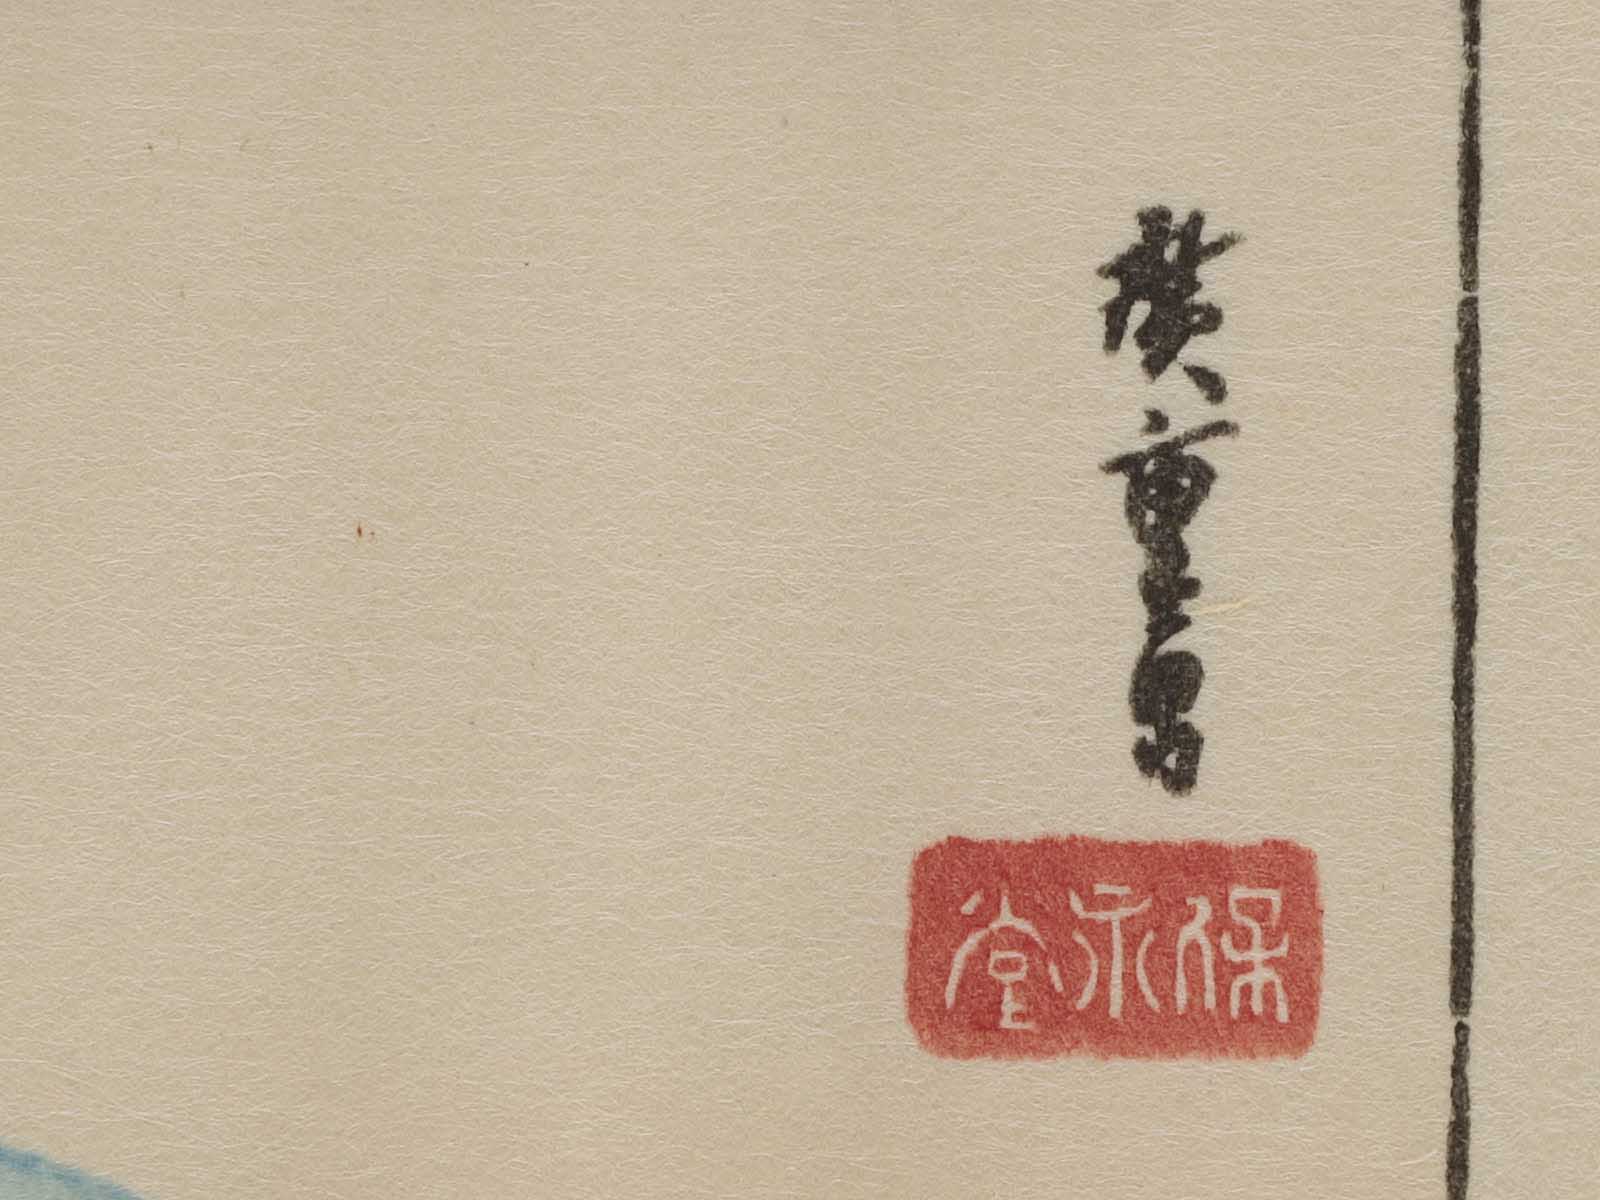 廣重画
保永堂